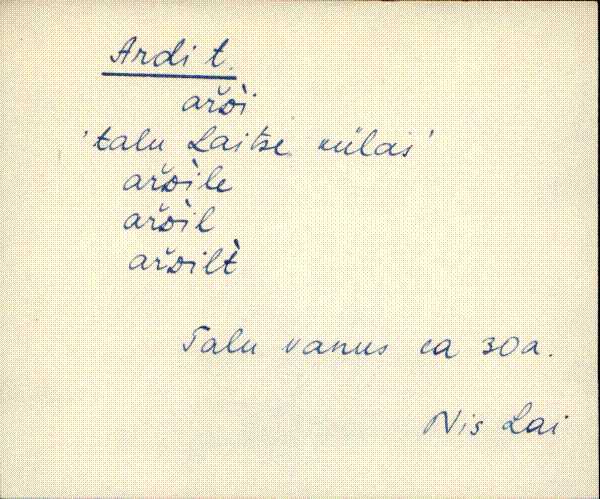 Ardi t.
aŕᴅ̀i
'talu Laitse külas'
aŕᴅ̀ile
aŕᴅ̀il
aŕᴅ̀ilt
Talu vanus ca 30a.
Nis Lai